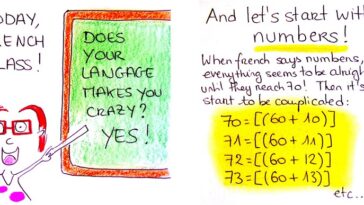 ODAY,
RENCH
LASS!
DOES
YOUR
LANGAGE
MAKES YOU
CRAZY?
YES!
And let's start with
numbers!
When french says numbers,
everything seems to be alright
until they reach 70! Then it's
start to be complicated:
70=[(60+10)]
71=[(60+11)]
72=[(60+12)]
73=[(60+13)]
etc...